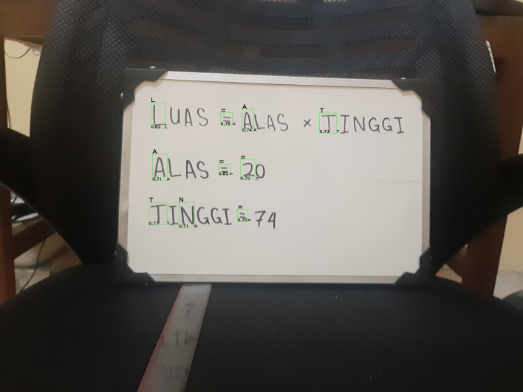 LUAS = ALAS × TINGGI
ALAS = 20
TINGGI = 74